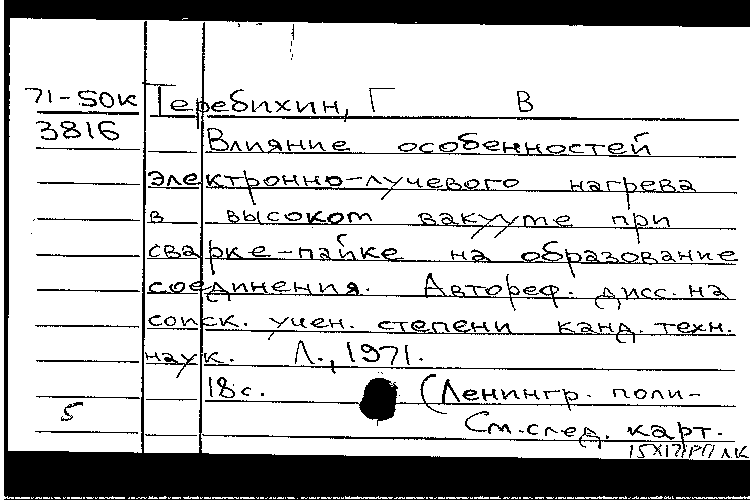 71-50к Теребихин, Г В
3816 Влияние особенностей
электронно-лучевого нагрева
в высоком вакууме при
сварке-пайке на образование
соединения. Автореф. дисс. на
соиск. учен. степени канд. техн.
наук. Л., 1971.
18 с. (Ленингр. поли-
5 См. след. карт.